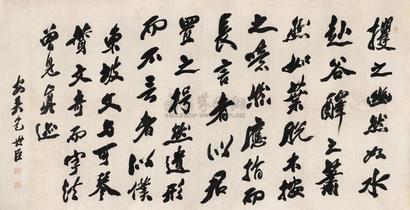 攫之幽然如水
赴谷醳之蕭
然如葉脫木按
之噫然應指而
長言者似君
置之枵然遺形
而不言者似僕
東坡文与可琴
贊文奇而字
曾見真迹
安吳包世臣